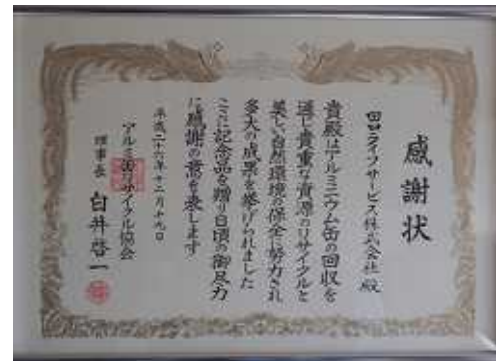 感謝状
田口ライフサービス株式会社 殿
貴殿はアルミニウム缶の回収を
通し貴重な資源のリサイクルと
美しい自然環境の保全に努力され
多大の成果を挙げられました
ここに記念品を贈り日頃の御尽力
に感謝の意を表します
平成二十六年十二月十九日
アルミ缶リサイクル協会
理事長 白井啓一